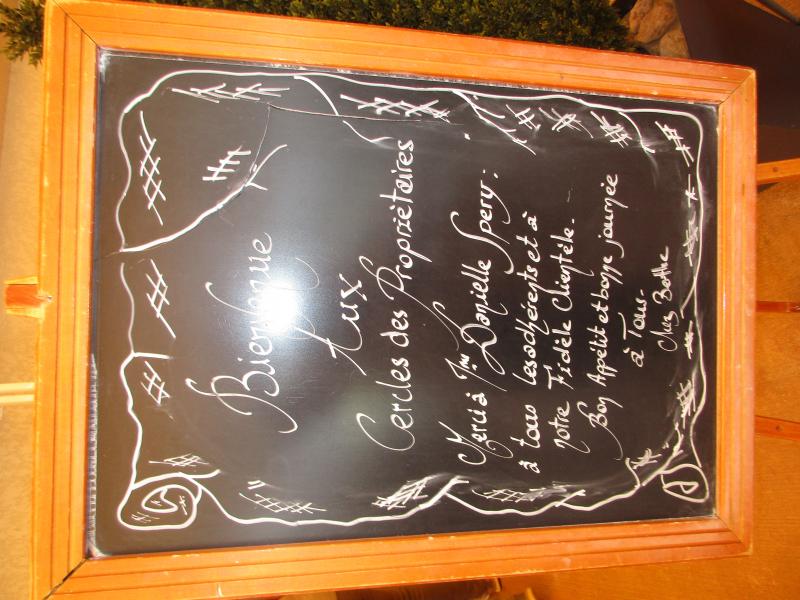 Bienvenue
Aux
Cercles des Propriètaires
Merci à Mme Danielle Spery:
à tous les adhérents et à
notre Fidèle Clientèle.
Bon Appétit et bonne journée
à Tous-
Chez Berthe